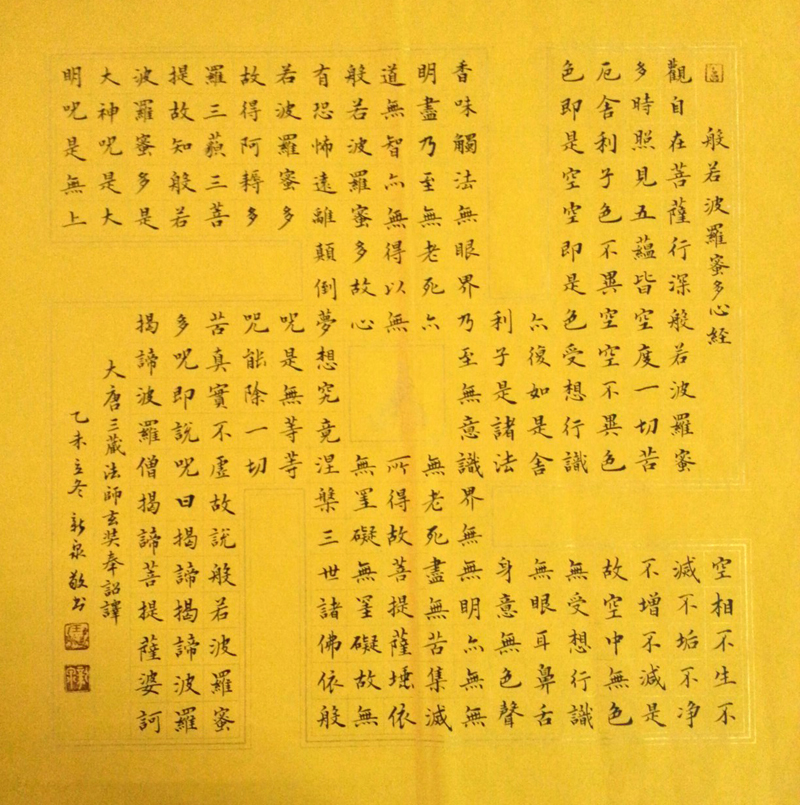 般若波羅蜜多心経
觀自在菩薩行深般若波羅蜜
多時照見五蘊皆空度一切苦
厄舍利子色不異空空不異色
色即是空空即是色受想行識
亦復如是舍
利子是諸法
空相不生不
滅不垢不净
不增不減是
故空中無色
無受想行識
無眼耳鼻舌
身意無色聲
香味觸法無眼界乃至無意識界無無明亦無無
明盡乃至無老死亦
無老死盡無苦集滅
道無智亦無得以無
所得故菩提薩埵依
般若波羅蜜多故心
無罣礙無罣礙故無
有恐怖遠離顛倒夢想究竟涅槃三世諸佛依般
若波羅蜜多
故得阿耨多
羅三藐三菩
提故知般若
波羅蜜多是
大神呪是大
明呪是無上
呪是無等等
呪能除一切
苦真實不虛故說般若波羅蜜
多呪即說呪曰揭諦揭諦波羅
揭諦波羅僧揭諦菩提薩婆訶
大唐三藏法師玄奘奉詔譯
乙未立冬新泉敬书